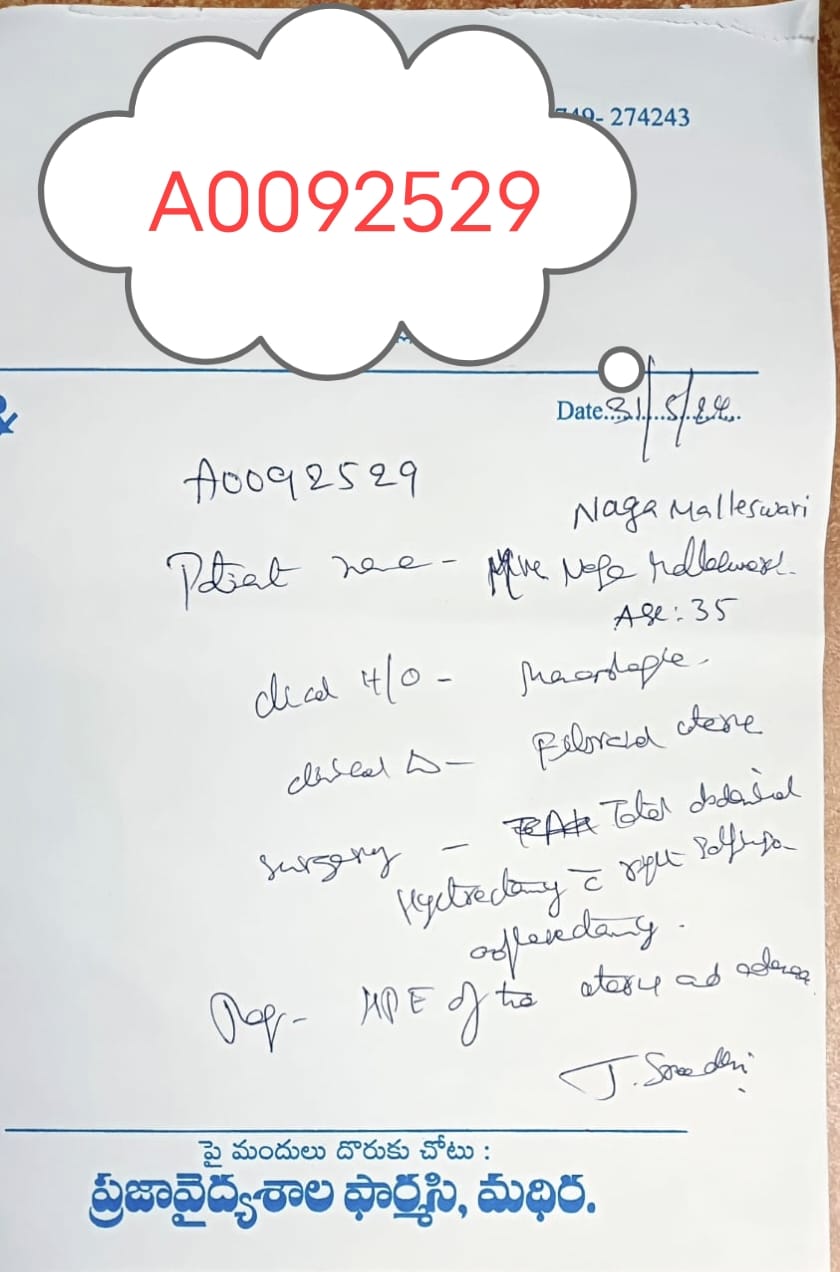 274243
A0092529
Date 31/5/24
A0092529
Naga Malleswari
Patient name - Naga Malleswari
Age: 35
H/O -
clinical Δ - Fibroid uterus
surgery - Total abdominal
Hysterectomy c̄ right Salpingo
oophorectomy.
HPE of the uterus and adnexa
పై మందులు దొరుకు చోటు :
ప్రజావైద్యశాల ఫార్మసి, మధిర.